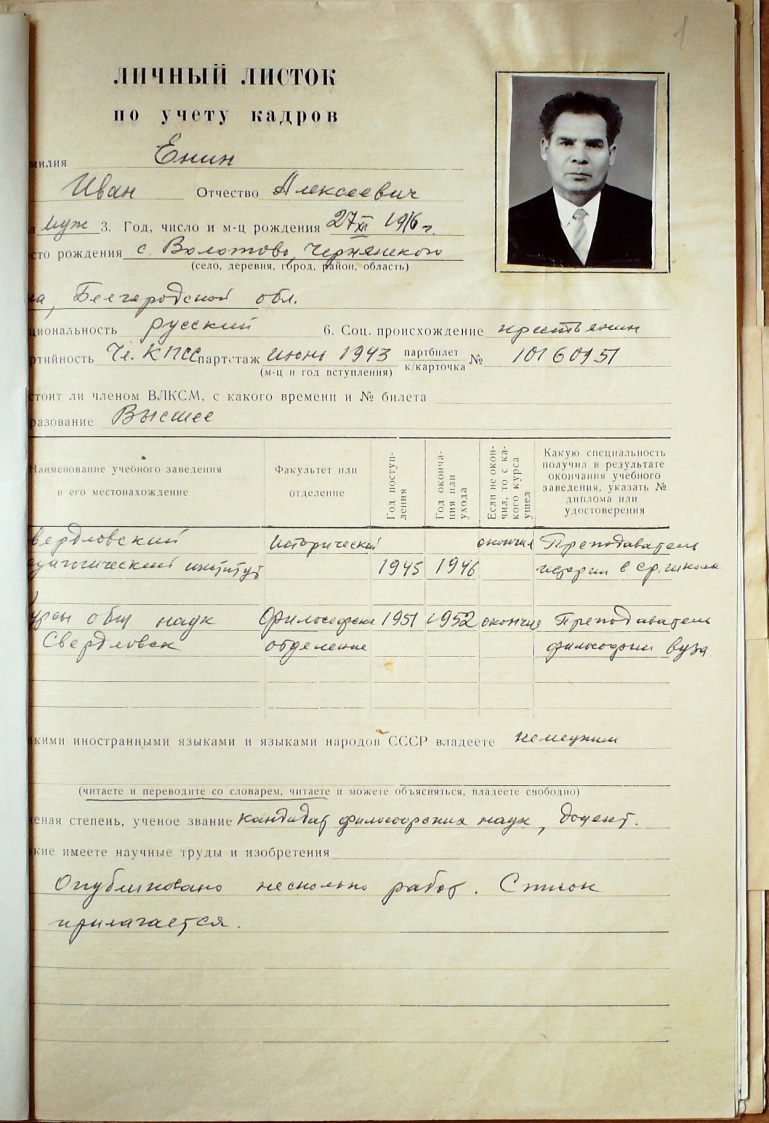 1
ЛИЧНЫЙ ЛИСТОК
по учету кадров
милия Енин
Иван Отчество Алексеевич
л муж 3. Год, число и м-ц рождения 27 XI 1916 г.
сто рождения с. Волотово, Чернянского
(село, деревня, город, район, область)
на, Белгородской обл.
циональность русский 6. Соц. происхождение крестьянин
ртийность Чл. КПСС партстаж июнь 1943 партбилет к/карточка № 10160151
(м-ц и год вступления)
стоит ли членом ВЛКСМ, с какого времени и № билета
разование Высшее
Наименование учебного заведения и его местонахождение
Факультет или отделение
Год поступ-ления
Год оконча-ния или ухода
Если не окон-чил, то с ка-кого курса ушел
Какую специальность получил в результате окончания учебного заведения, указать № диплома или удостоверения
вердловский исторический окончил Преподаватель
дагогический институт 1945 1946 истории в ср. школа
урсы общ наук Философское 1951 1952 окончил Преподаватель
Свердловск отделение философии вуза
кими иностранными языками и языками народов СССР владеете немецким
(читаете и переводите со словарем, читаете и можете объясняться, владеете свободно)
еная степень, ученое звание кандидат философских наук, доцент.
кие имеете научные труды и изобретения
Опубликовано несколько работ. Список
прилагается.